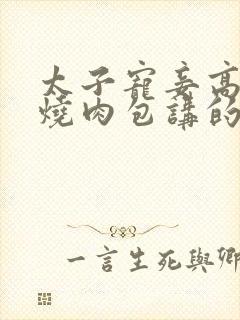 太子寵妾高
燒肉包講的
一言生死與鄉